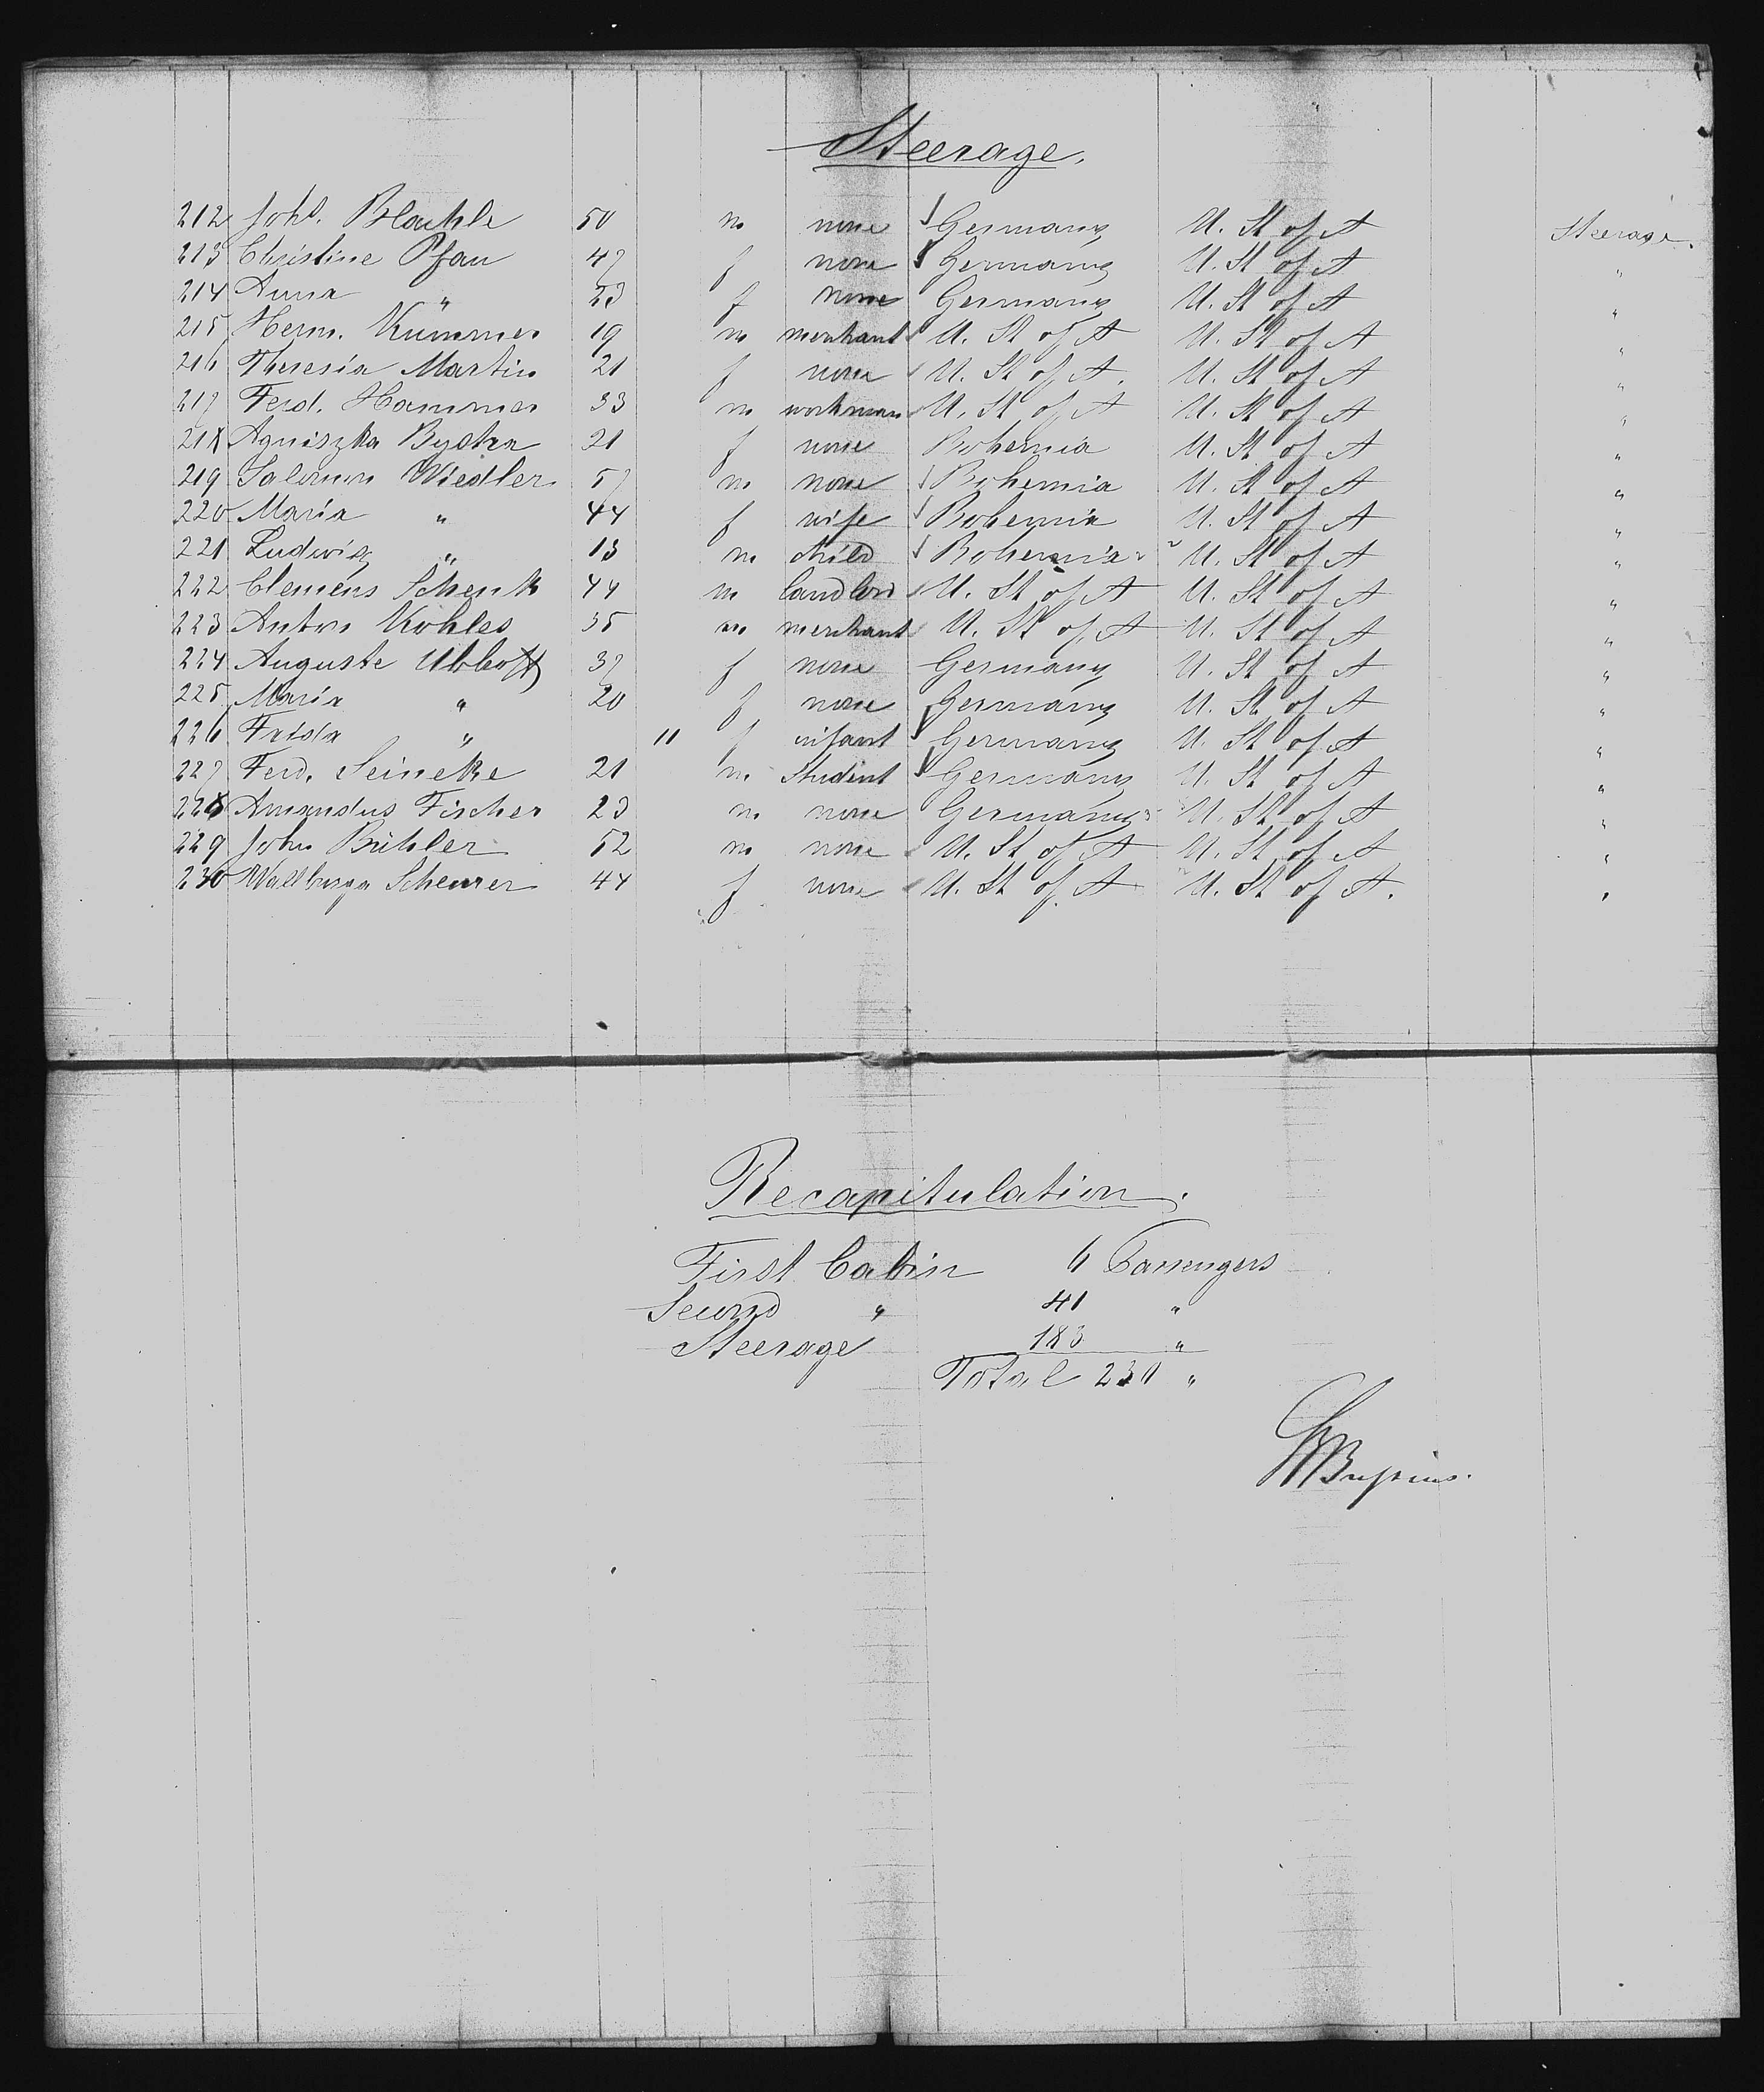 Steerage.
212 Joh. Blaukle 50 m none Germany U. St of A Steerage.
213 Christine Pfau 47 f none Germany U. St of A "
214 Anna " 23 f none Germany U. St of A "
215 Herm. Kümmer 19 m merchant U. St of A U. St of A "
216 Theresia Martin 21 f none U. St of A. U. St of A "
217 Ferd. Hammer 33 m workman U. St of A U. St of A "
218 Agniszka 21 f none Bohemia U. St of A "
219 Salomon Wiedler 57 m none Bohemia U. St of A "
220 Maria " 44 f wife Bohemia U. St of A "
221 Ludwig " 13 m child Bohemia U. St of A "
222 Clemens Schenk 44 m landlord U. St of A U. St of A "
223 Anton Kohles 35 m merchant U. St of A U. St of A "
224 Auguste Ubhoff 37 f none Germany U. St of A "
225 Maria " 20 f none Germany U. St of A "
226 Frida " 11 f infant Germany U. St of A "
227 Ferd. Seineke 21 m Student Germany U. St of A "
228 Amandus Fischer 23 m none Germany U. St of A "
229 John Bühler 52 m none U. St of A U. St of A "
230 Wallburga Scheurer 44 f none U. St of A U. St of A. "
Recapitulation.
First Cabin 6 Passengers
Second " 41 "
Steerage 183 "
Total 230 "